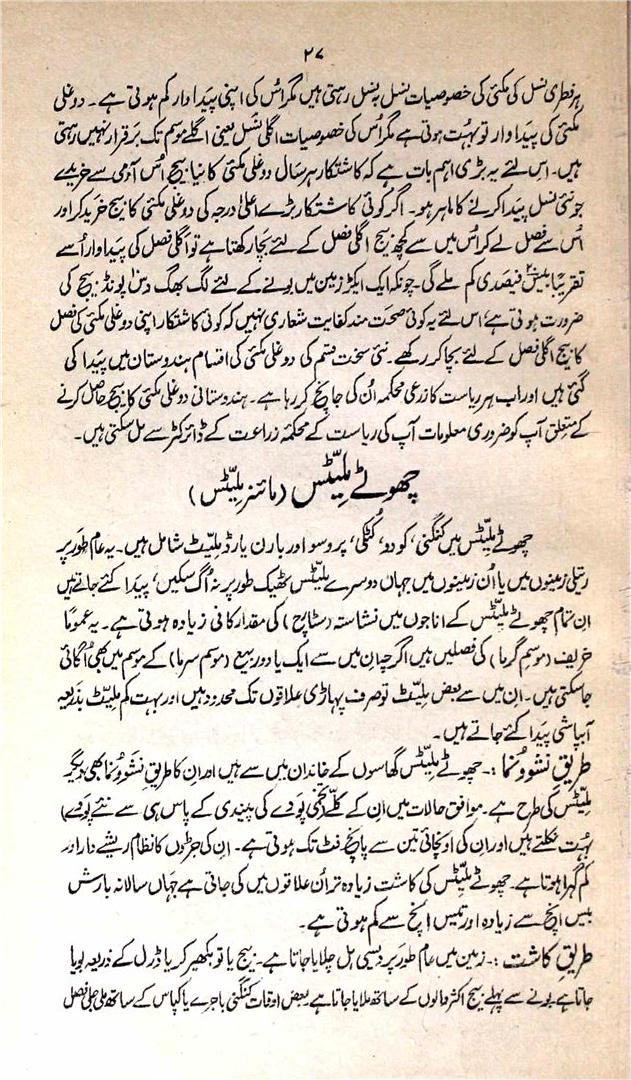 ۲۷
ہر فطری نسل کی مکئی کی خصوصیات نسل بہ نسل رہتی ہیں مگر اُس کی اپنی پیداوار کم ہوتی ہے۔ دوغلی
مکئی کی پیداوار تو بہت ہوتی ہے مگر اُس کی خصوصیات اگلی نسل یعنی اگلے موسم تک برقرار نہیں رہتی
ہیں۔ اِس لئے یہ بڑی اہم بات ہے کہ کاشتکار ہر سال دوغلی مکئی کا نیا بیج اُس آدمی سے خریدے
جو نئی نسل پیدا کرنے کا ماہر ہو۔ اگر کوئی کاشتکار بڑے اعلیٰ درجہ کی دوغلی مکئی کا بیج خرید کر اور
اُس سے فصل لے کر اُس میں سے کچھ بیج اگلی فصل کے لئے بچا رکھتا ہے تو اگلی فصل کی پیداوار اُسے
تقریباً بیس۲۰ فیصدی کم ملے گی۔ چونکہ ایک ایکڑ زمین میں بونے کے لئے لگ بھگ دس پونڈ بیج کی
ضرورت ہوتی ہے، اس لئے یہ کوئی صحت مند کفایت شعاری نہیں کہ کوئی کاشتکار اپنی دوغلی مکئی کی فصل
کا بیج اگلی فصل کے لئے بچا کر رکھے۔ نئی سخت قسم کی دوغلی مکئی کی اقسام ہندوستان میں پیدا کی
گئی ہیں اور اب ہر ریاست کا زرعی محکمہ اُن کی جانچ کر رہا ہے۔ ہندوستانی دوغلی مکئی کا بیج حاصل کرنے
کے متعلق آپ کو ضروری معلومات آپ کی ریاست کے محکمۂ زراعت کے ڈائرکٹر سے مل سکتی ہیں۔
چھوٹے ملیٹس (مائنر ملیٹس)
چھوٹے ملیٹس میں کنگنی، کودو، کٹکی، پروسو اور بارن یارڈ ملیٹ شامل ہیں۔ یہ عام طور پر
ریتلی زمینوں میں یا اُن زمینوں میں جہاں دوسرے ملیٹس ٹھیک طور پر نہ اُگ سکیں، پیدا کئے جاتے ہیں
ان تمام چھوٹے ملیٹس کے اناجوں میں نشاستہ (سٹارچ) کی مقدار کافی زیادہ ہوتی ہے۔ یہ عموماً
خریف (موسم گرما) کی فصلیں ہیں اگرچہ ان میں سے ایک یا دو ربیع (موسم سرما) کے موسم میں بھی اُگائی
جا سکتی ہیں۔ ان میں سے بعض ملیٹ تو صرف پہاڑی علاقوں تک محدود ہیں اور بہت کم ملیٹ بذریعہ
آبپاشی پیدا کئے جاتے ہیں۔
طریقِ نشوونما:۔ چھوٹے ملیٹس گھاسوں کے خاندان میں سے ہیں اور ان کا طریقِ نشوونما بھی دیگر
ملیٹس کی طرح ہے۔ موافق حالات میں ان کے کلّے (یعنی پودے کی پیندی کے پاس ہی سے نئے پودے)
بہت نکلتے ہیں اور ان کی اونچائی تین سے پانچ فٹ تک ہوتی ہے۔ ان کی جڑوں کا نظام ریشے دار اور
کم گہرا ہوتا ہے۔ چھوٹے ملیٹس کی کاشت زیادہ تر اُن علاقوں میں کی جاتی ہے جہاں سالانہ بارش
بیس اِنچ سے زیادہ اور تیس اِنچ سے کم ہوتی ہے۔
طریقِ کاشت:۔ زمین میں عام طور پر دیسی ہل چلایا جاتا ہے۔ بیج یا تو بکھیر کر یا ڈرل کے ذریعہ بویا
جاتا ہے بونے سے پہلے بیج اکثر دالوں کے ساتھ ملایا جاتا ہے۔ بعض اوقات کنگنی باجرے یا کپاس کے ساتھ ملی جلی فصل